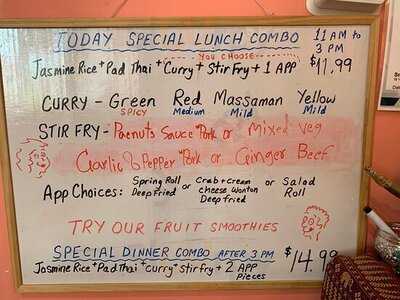 TODAY SPECIAL LUNCH COMBO 11 AM to 3 PM
YOU CHOOSE
Jasmine Rice + Pad Thai + Curry + Stir Fry + 1 APP $11.99
CURRY - Green Red Massaman Yellow
SPICY Medium Mild Mild
STIR FRY - Paenuts Sauce Pork or Mixed veg
Garlic & Pepper Pork or Ginger Beef
App Choices: Spring Roll Deep fried or Crab + cream cheese wonton Deep fried or Salad Roll
TRY OUR FRUIT SMOOTHIES
SPECIAL DINNER COMBO AFTER 3 PM $14.99
Jasmine Rice + Pad Thai + curry + stir fry + 2 APP Pieces